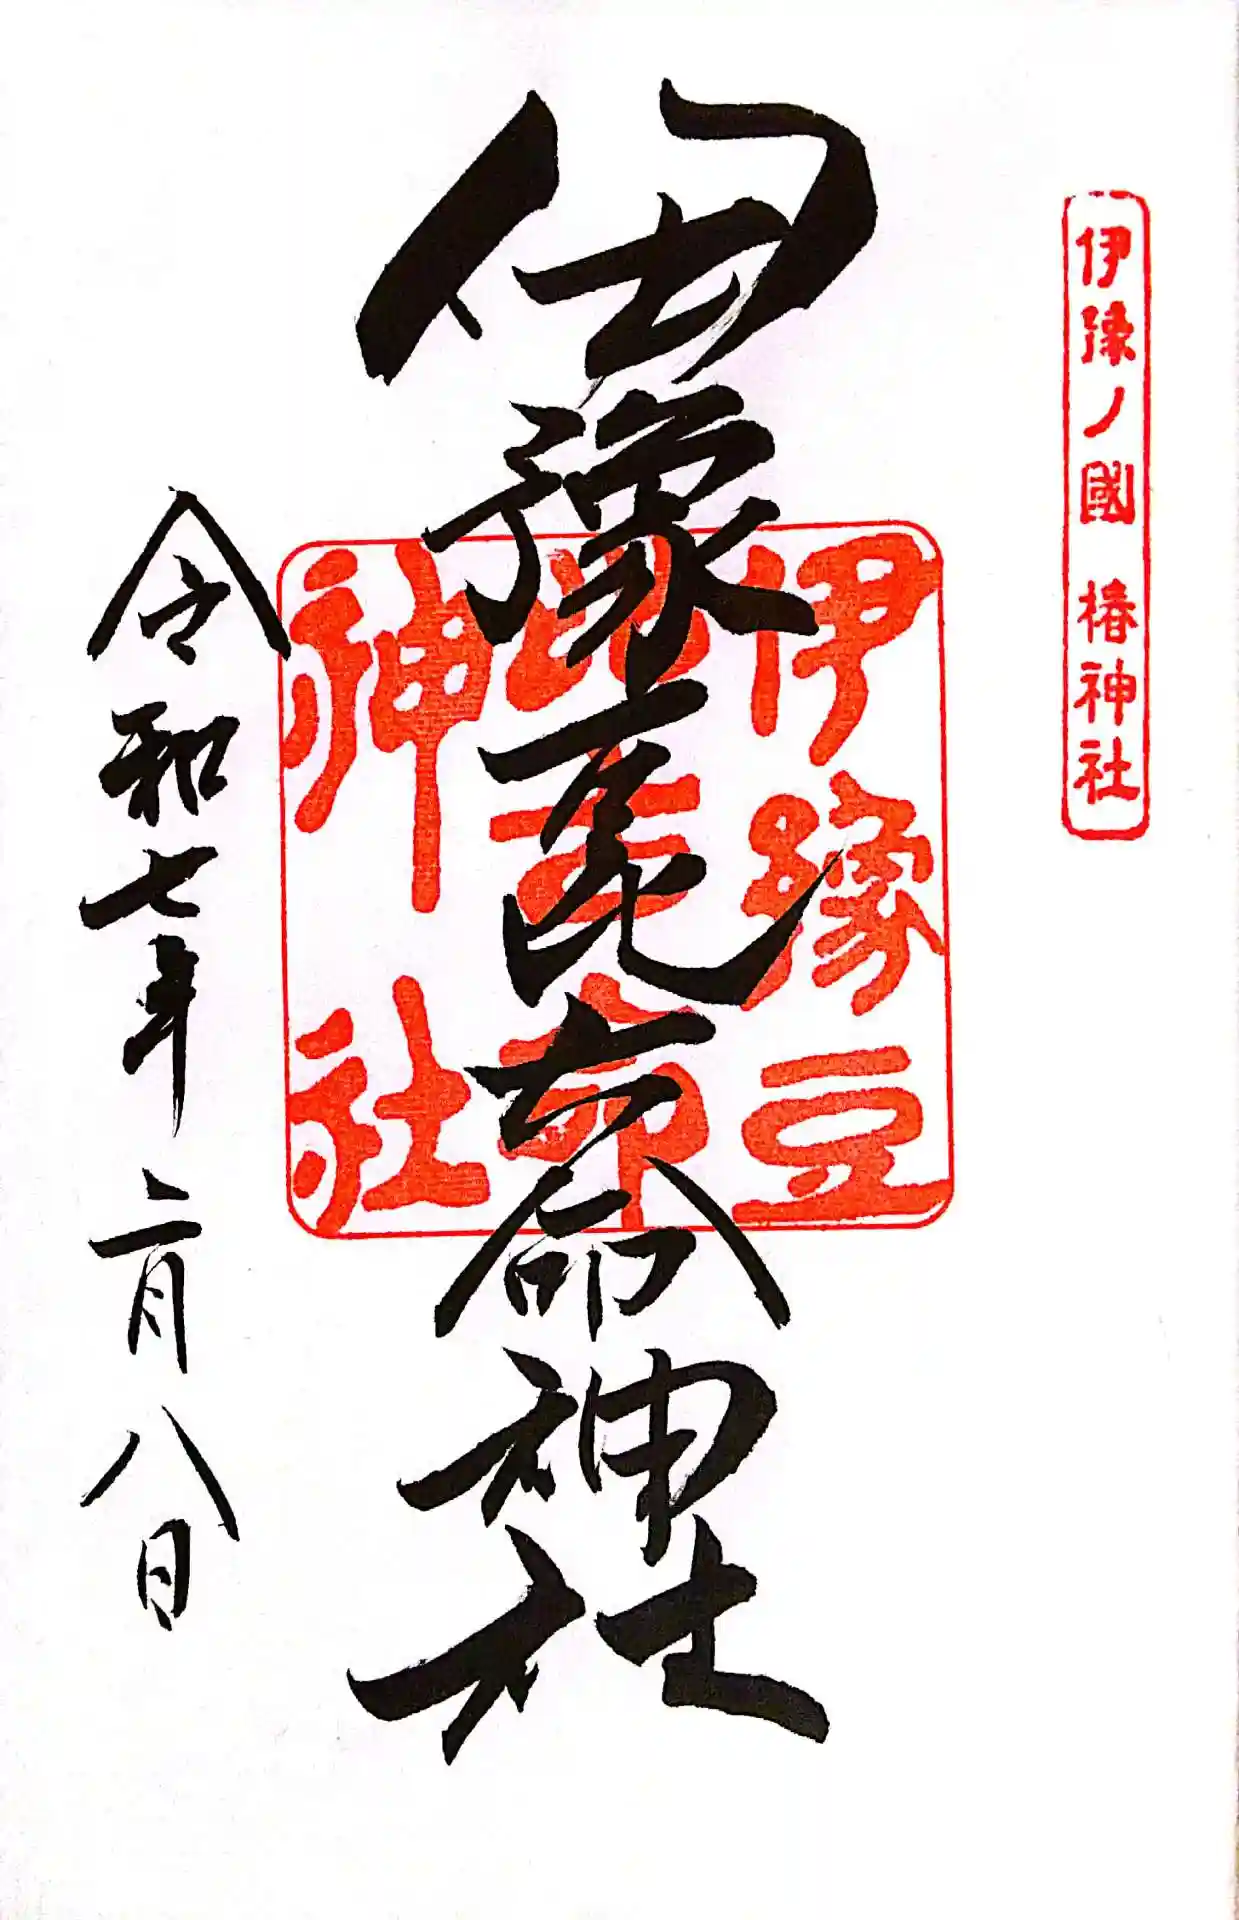 伊豫ノ國 椿神社
伊豫豆比古命神社
伊豫豆
比古命
神社
令和七年二月八日